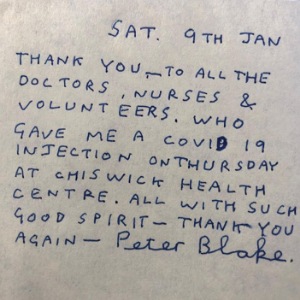 SAT. 9TH JAN
THANK YOU — TO ALL THE
DOCTORS, NURSES &
VOLUNTEERS. WHO
GAVE ME A COVID 19
INJECTION ON THURSDAY
AT CHISWICK HEALTH
CENTRE. ALL WITH SUCH
GOOD SPIRIT — THANK YOU
AGAIN — Peter Blake.